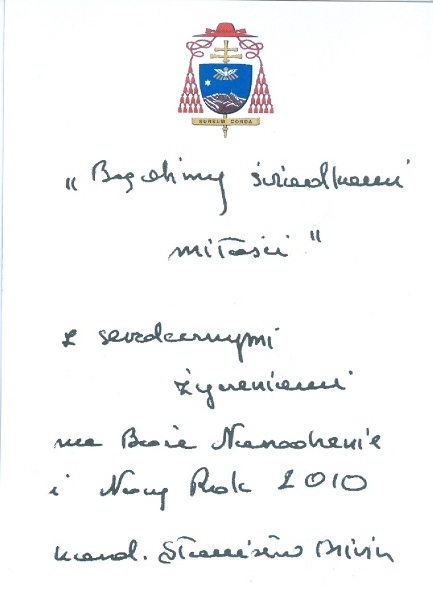 SURSUM CORDA
„Bądźmy świadkami
miłości"
Z serdecznymi
życzeniami
na Boże Narodzenie
i Nowy Rok 2010
kard. Stanisław Dziwisz